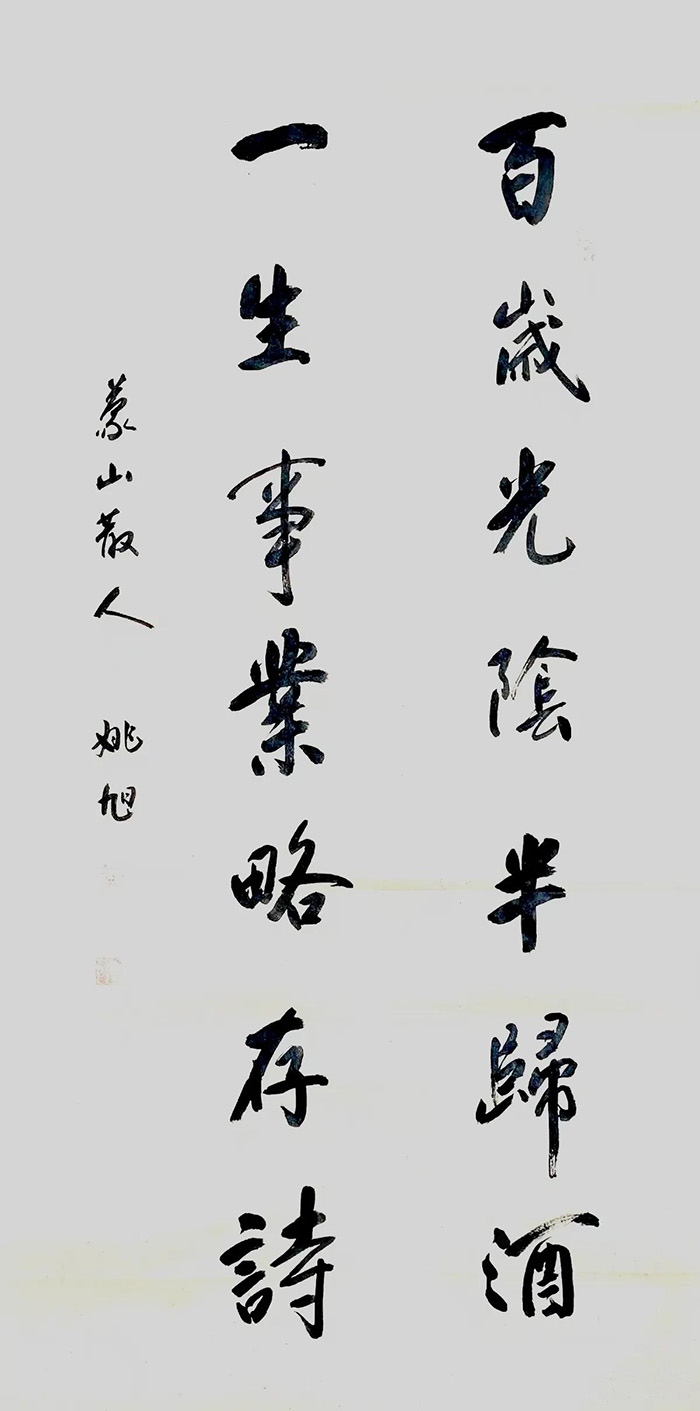 百歲光陰半歸酒
一生事業略存詩
蒙山散人 姚旭